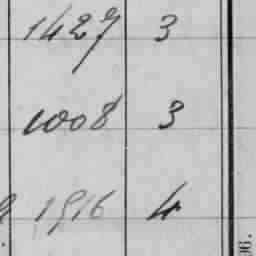 1427 3
1008 3
1916 4